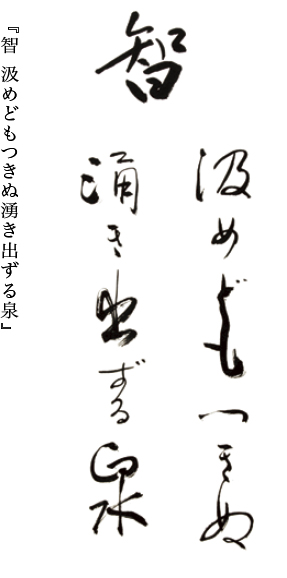 智
汲めどもつきぬ
涌き出ずる泉
『智 汲めどもつきぬ湧き出ずる泉』